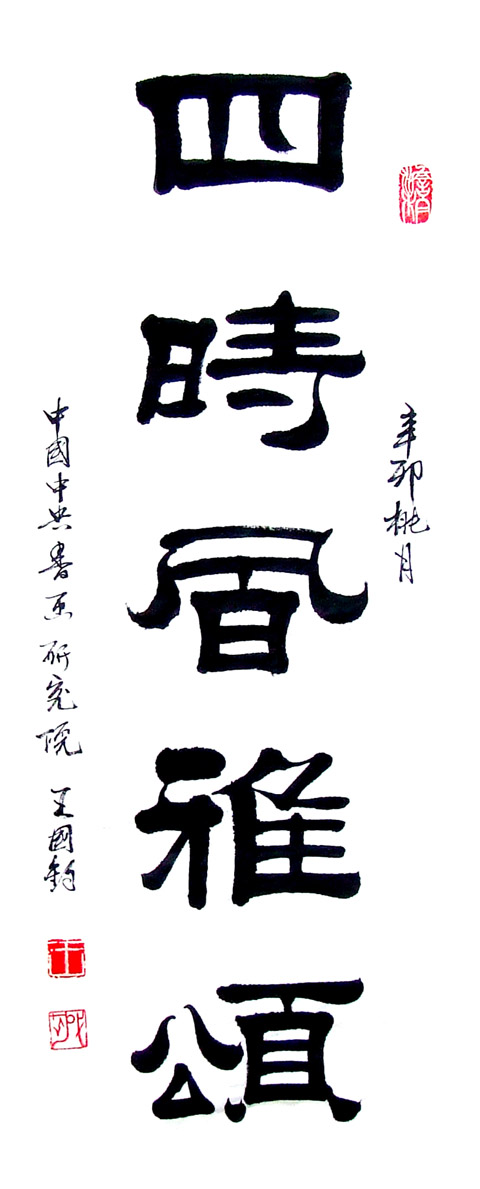 辛卯桃月
四時風雅頌
中國中央書畫研究院 王國鈞
王